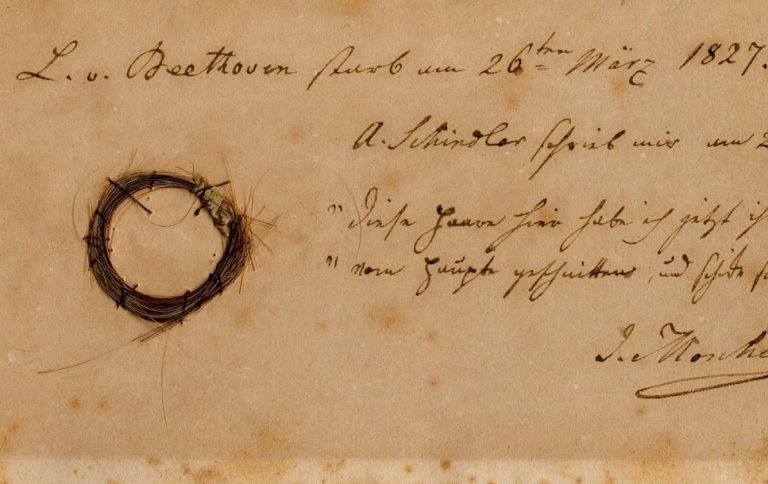 L. v. Beethoven starb am 26ten März 1827.
A. Schindler schrieb mir am 2
"Diese Haare hier habe ich jetzt ih
"vom Haupte geschnitten, und schicke s
I. Mosche